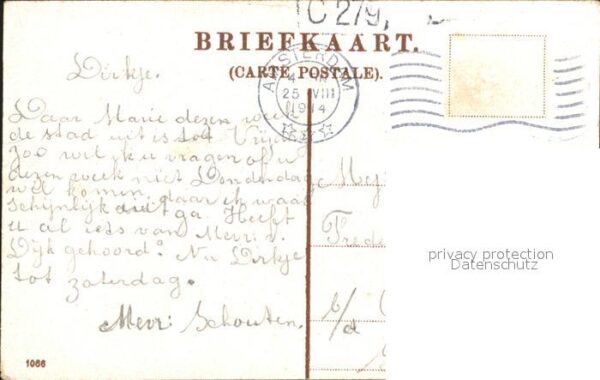 C 279,
BRIEFKAART.
(CARTE POSTALE).
AMSTERDAM
25 VIII
1914
Dirkje.
Daar Marie dezen
de stad uit is tot
zoo wil ik u vragen of u
dezen week niet Donderdag
wil komen, daar ik waar
schijnlijk uit ga. Heeft
u al iets van Mevr: v.
Dijk gehoord? Nu Dirkje
tot zaterdag.
Mevr: Schouten.
Mej
Frede
b/d
privacy protection
Datenschutz
1066